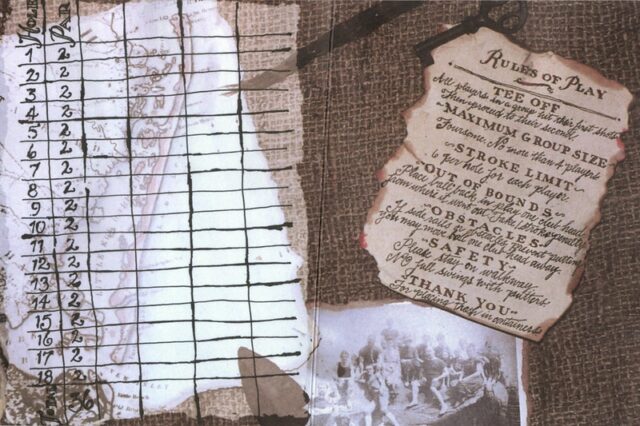 HOLE PAR
1 2
2 2
3 2
4 2
5 2
6 2
7 2
8 2
9 2
10 2
11 2
12 2
13 2
14 2
15 2
16 2
17 2
18 2
36
RULES OF PLAY
TEE OFF
All players in a group putt their first shots
Then proceed to their second.
~MAXIMUM GROUP SIZE
Foursome. No more than 4 players
~STROKE LIMIT~
6 per hole for each player
~OUT OF BOUNDS~
Place ball back in play one club head
from where it went out. Take stroke penalty
~OBSTACLES~
If side wall or obstacles prevent putting
you may move ball one club head away.
~SAFETY~
Please stay on walkway
No full swings with putters
~THANK YOU~
For putting trash in containers